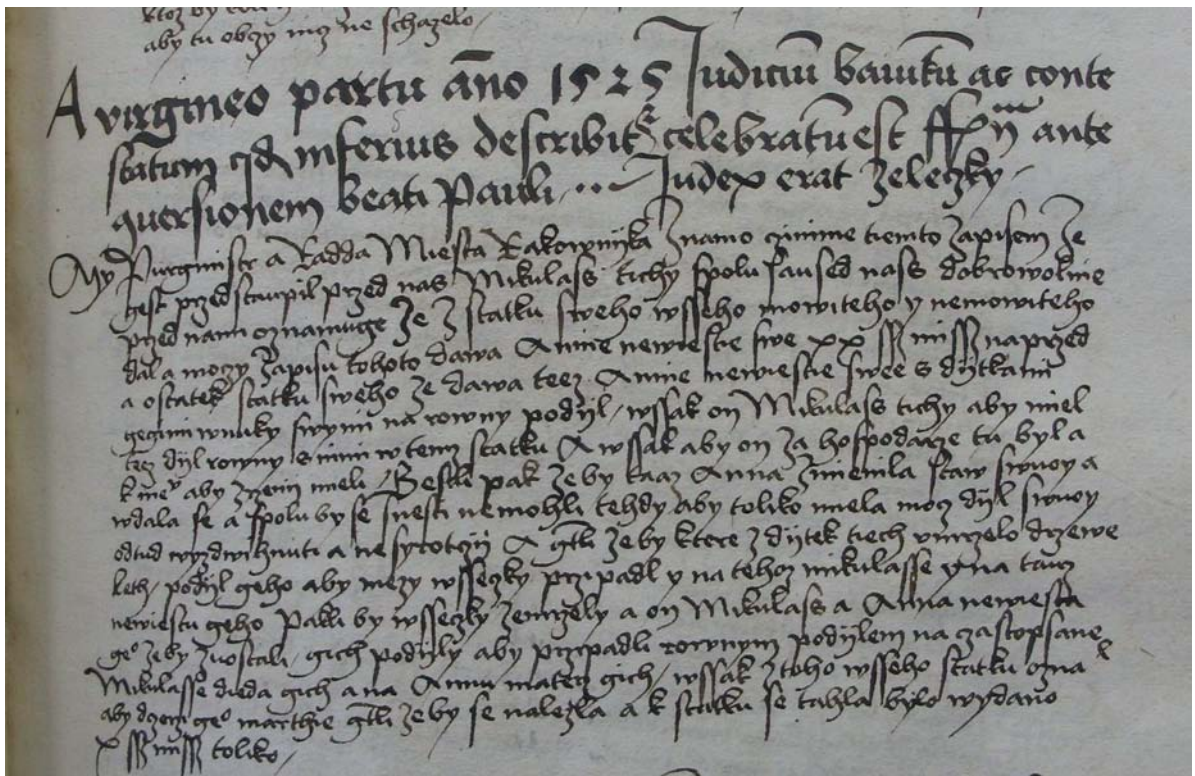 aby tu obczy nicz ne schazelo
A virgineo partu āno 1525 Judiciū baniētū ac conte
statum qd inferius describit celebratūest ante
quersionem beati Pauli Judex erat Zeleczky
My Purgmistr a Radda Miesta Rakownijka Znamo czinime tiemto Zapisem Ze
gest przedstaupil przed nas Mikulass tichy spolu saused nass dobrowolnie
przed nami oznamuge Ze Z statku sweho wsseho mowiteho y nemowiteho
dal a moczy Zapisu tohoto dawa Annie newiestie swe xx ss miss naprzed
a ostatek statku sweho Ze dawa teez Annie newiestie swee s dijtkami
gegimi wnuky swymi na rowny podijl, wssak on Mikulass tichy aby miel
tez dijl rowny s nimi w tem statku A wssak aby on Za hospodarze tu byl a
k nie° aby Zrzenij mieli, Gestli pak Zeby taaz Anna Zmienila staw swuoy a
wdala se a spolu by se snesti nemohli tehdy aby toliko miela mocz dijl swuoy
odtud wyzdwihnuti a ne syrotczij A gtli Zeby ktere z dijtek tiech vmrzelo drzewe
leth, podijl geho aby mezy wsseczky przipadl y na tehoz mikulasse y na tauz
newiestu geho Pakli by wsseczky Zemrzely a on Mikulass a Anna newiesta
ge° Zeby Zuostali, gich podijly aby przipadli rownym podijlem na czastopsane°
Mikulasse dieda gich a na Annu materz gich, wssak Z toho wsseho statku
aby dczerzi ge° marthie gtli Zeby se nalezla a k statku se tahla bylo wydano
x ss miss toliko